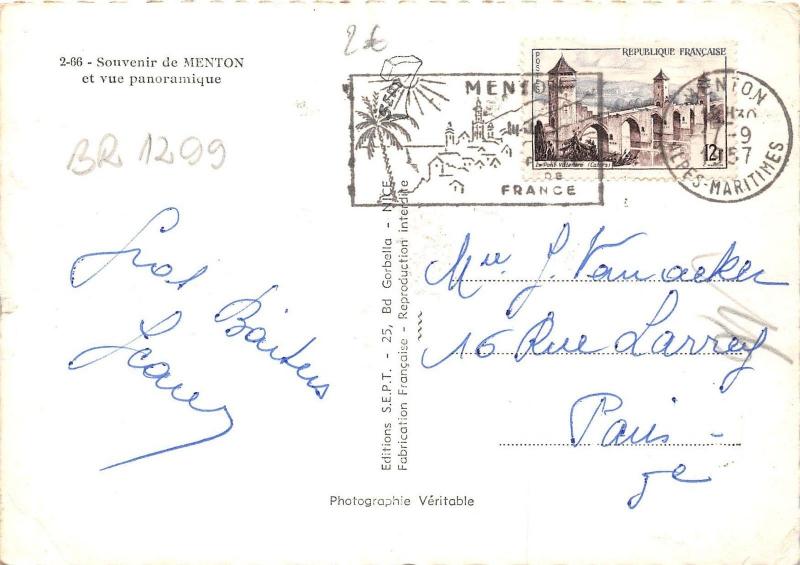 2-66 - Souvenir de MENTON
et vue panoramique
2€
BR 1299
MENTON
DE
FRANCE
RÉPUBLIQUE FRANÇAISE
POSTES
Le Pont Valentré (Cahors)
12F
MENTON
17-9
57
ALPES-MARITIMES
Gros Baisers
Editions S.E.P.T. - 25, Bd Gorbella - NICE
Fabrication Française - Reproduction interdite
Mlle J. Vanacker
16 Rue Larrey
Paris -
5e
Photographie Véritable